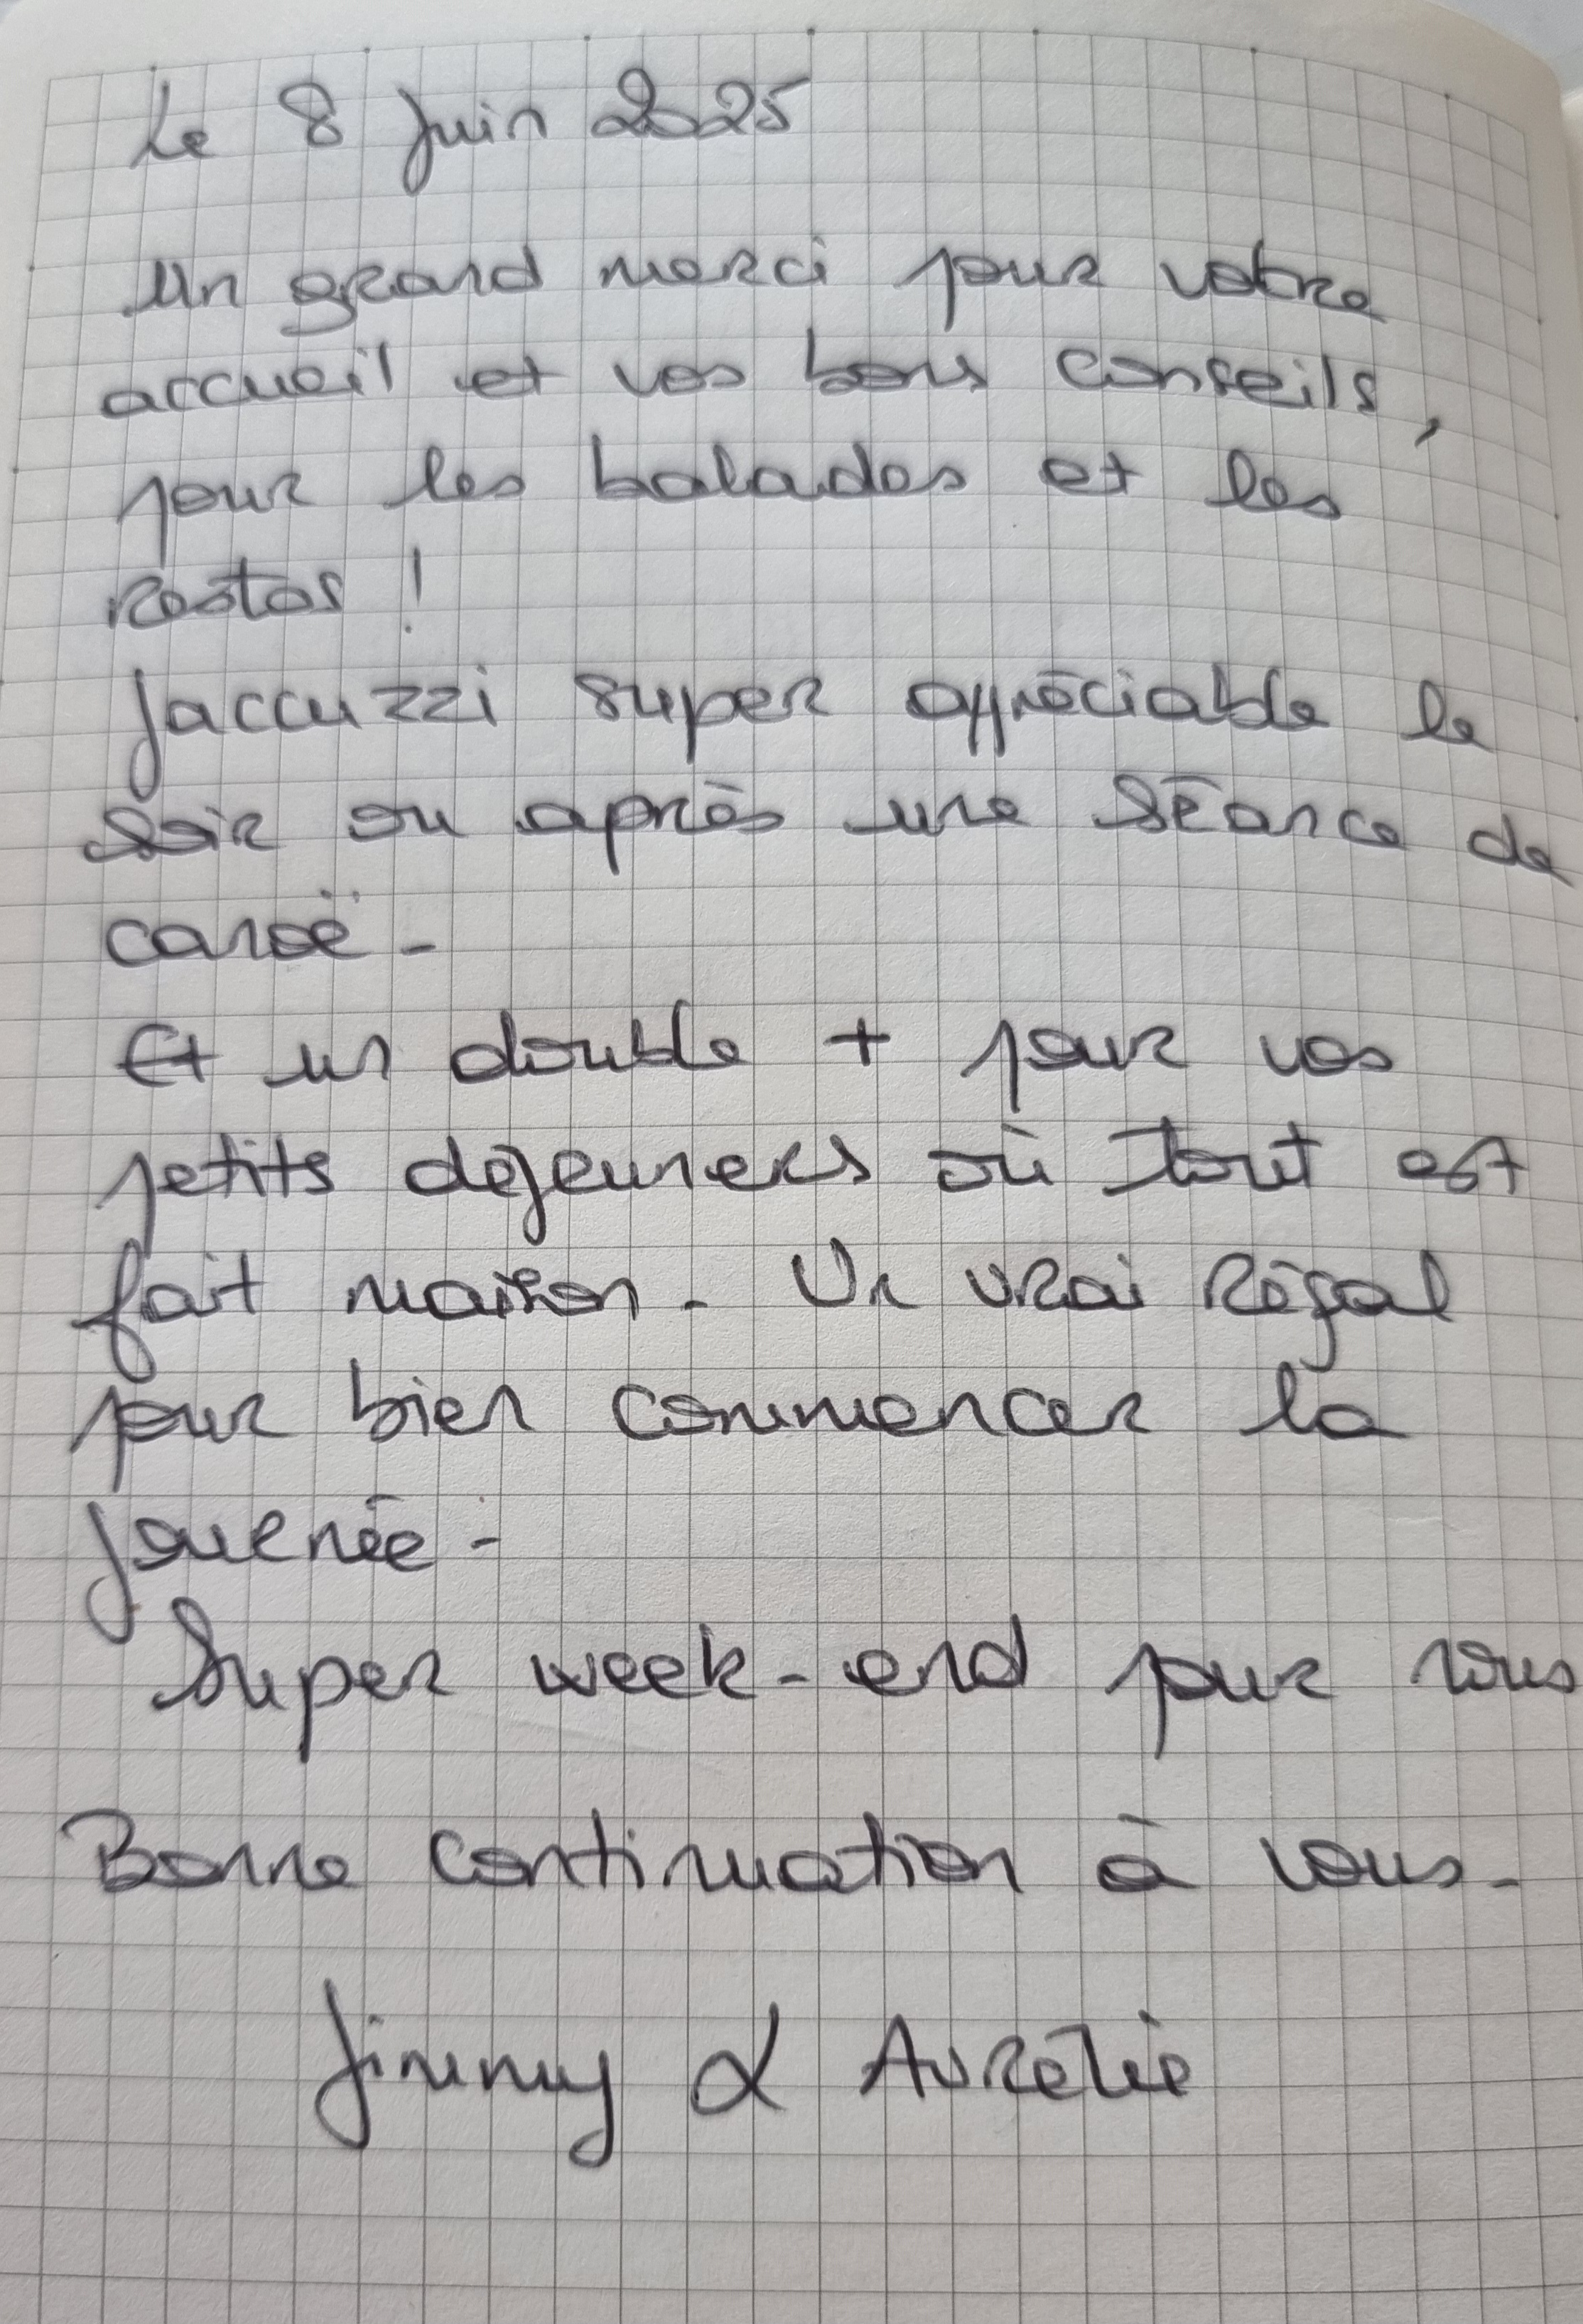 Le 8 Juin 2025
Un grand merci pour votre
accueil et vos bons conseils,
pour les balades et les
restos !
Jaccuzzi super appréciable le
soir ou après une séance de
canoë -
Et un double + pour vos
petits dejeuners où tout est
fait maison - Un vrai régal
pour bien commencer la
journée -
Super week-end pour nous
Bonne continuation à vous -
Jimmy & Aurélie